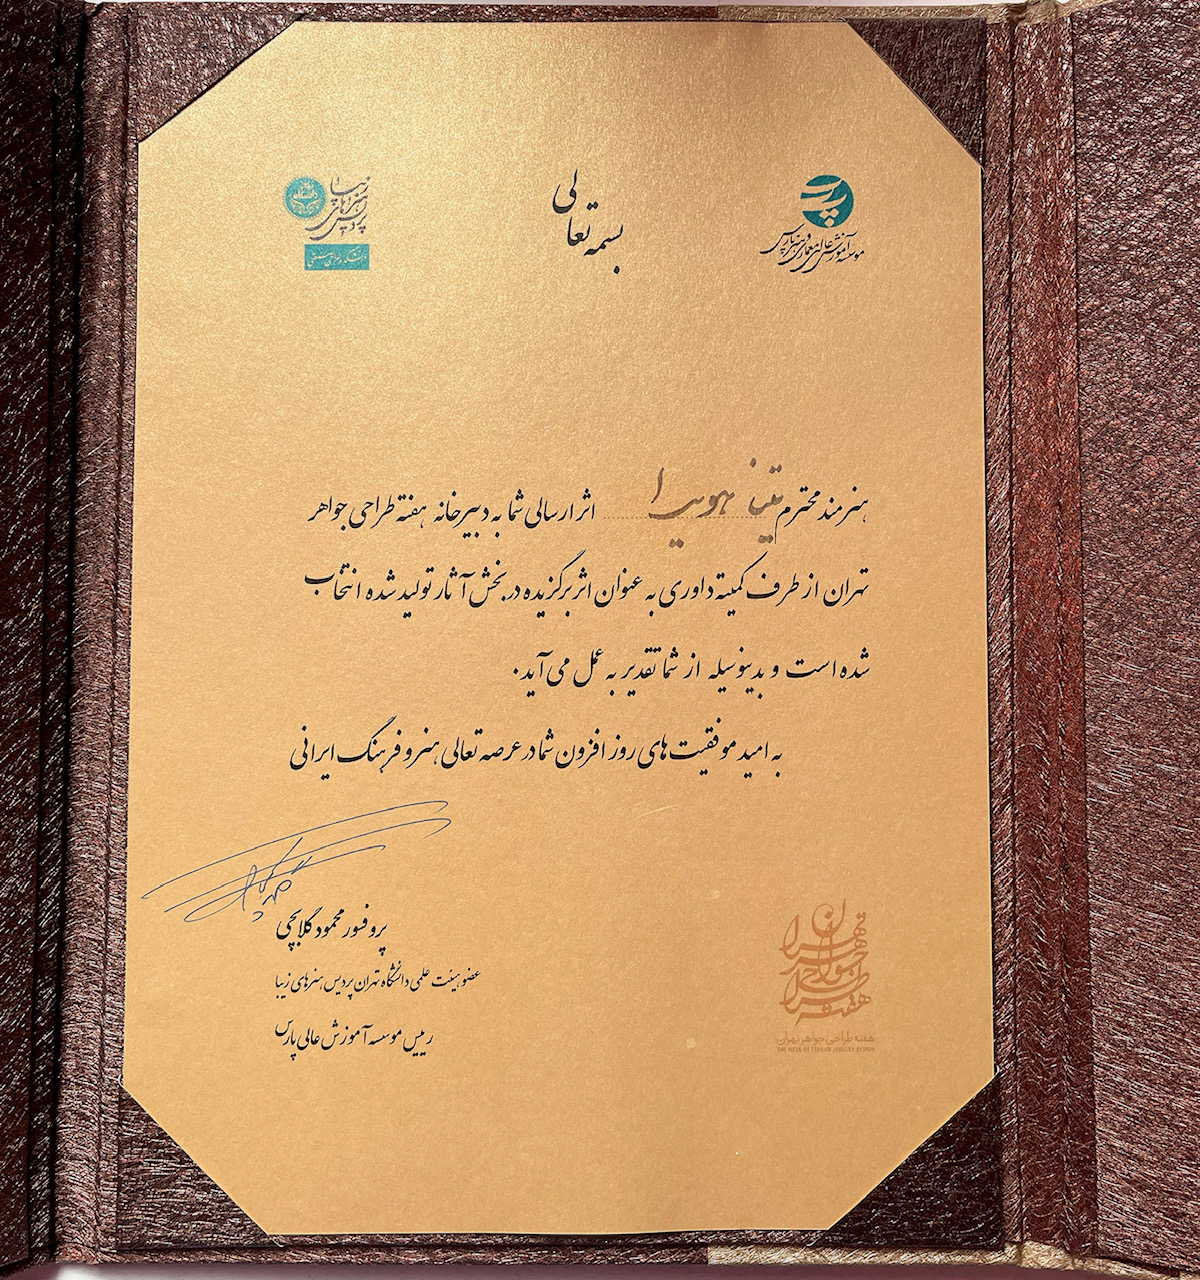 بسمه تعالی
موسسه آموزش عالی معماری و هنر پارس
پردیس هنرهای زیبا
هنرمند محترم هویدا اثر ارسالی شما به دبیرخانه هفته طراحی جواهر
تهران از طرف کمیته داوری به عنوان اثر برگزیده در بخش آثار تولید شده انتخاب
شده است و بدینوسیله از شما تقدیر به عمل می آید.
به امید موفقیت های روز افزون شما در عرصه تعالی هنر و فرهنگ ایرانی
پروفسور محمود گلابچی
عضو هیئت علمی دانشگاه تهران پردیس هنرهای زیبا
رییس موسسه آموزش عالی پارس
هفته طراحی جواهر تهران
هفته طراحی جواهر تهران
THE WEEK OF TEHRAN JEWELRY DESIGN